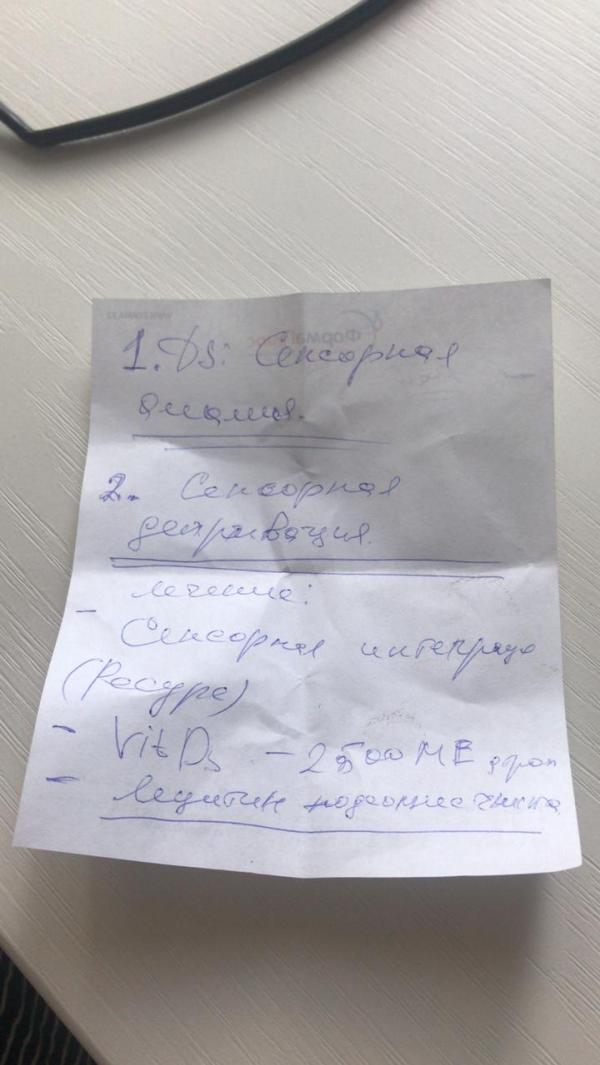 1. Ds: Сенсорная
алалия.
2. Сенсорная
депривация.
лечение:
- Сенсорная интеграце
(Ресурс)
- Vit D3 - 2500 МЕ утром
- Лецитин подсолнечника